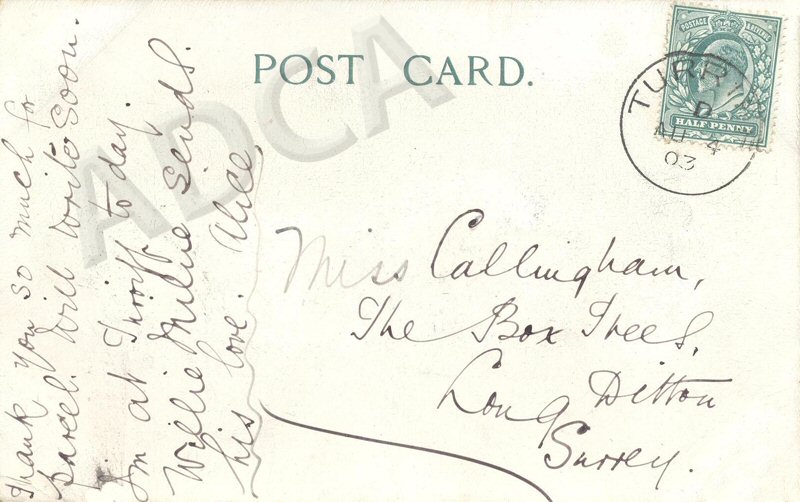 POST CARD.
POSTAGE & REVENUE
HALFPENNY
TURRIFF
D
AU 4
03
ADCA
Thank you so much for
parcel. Will write soon.
I'm at Turriff to day.
Willie Milne sends
his love. Alice.
Miss Callingham,
The Box Trees,
Long Ditton
Surrey.